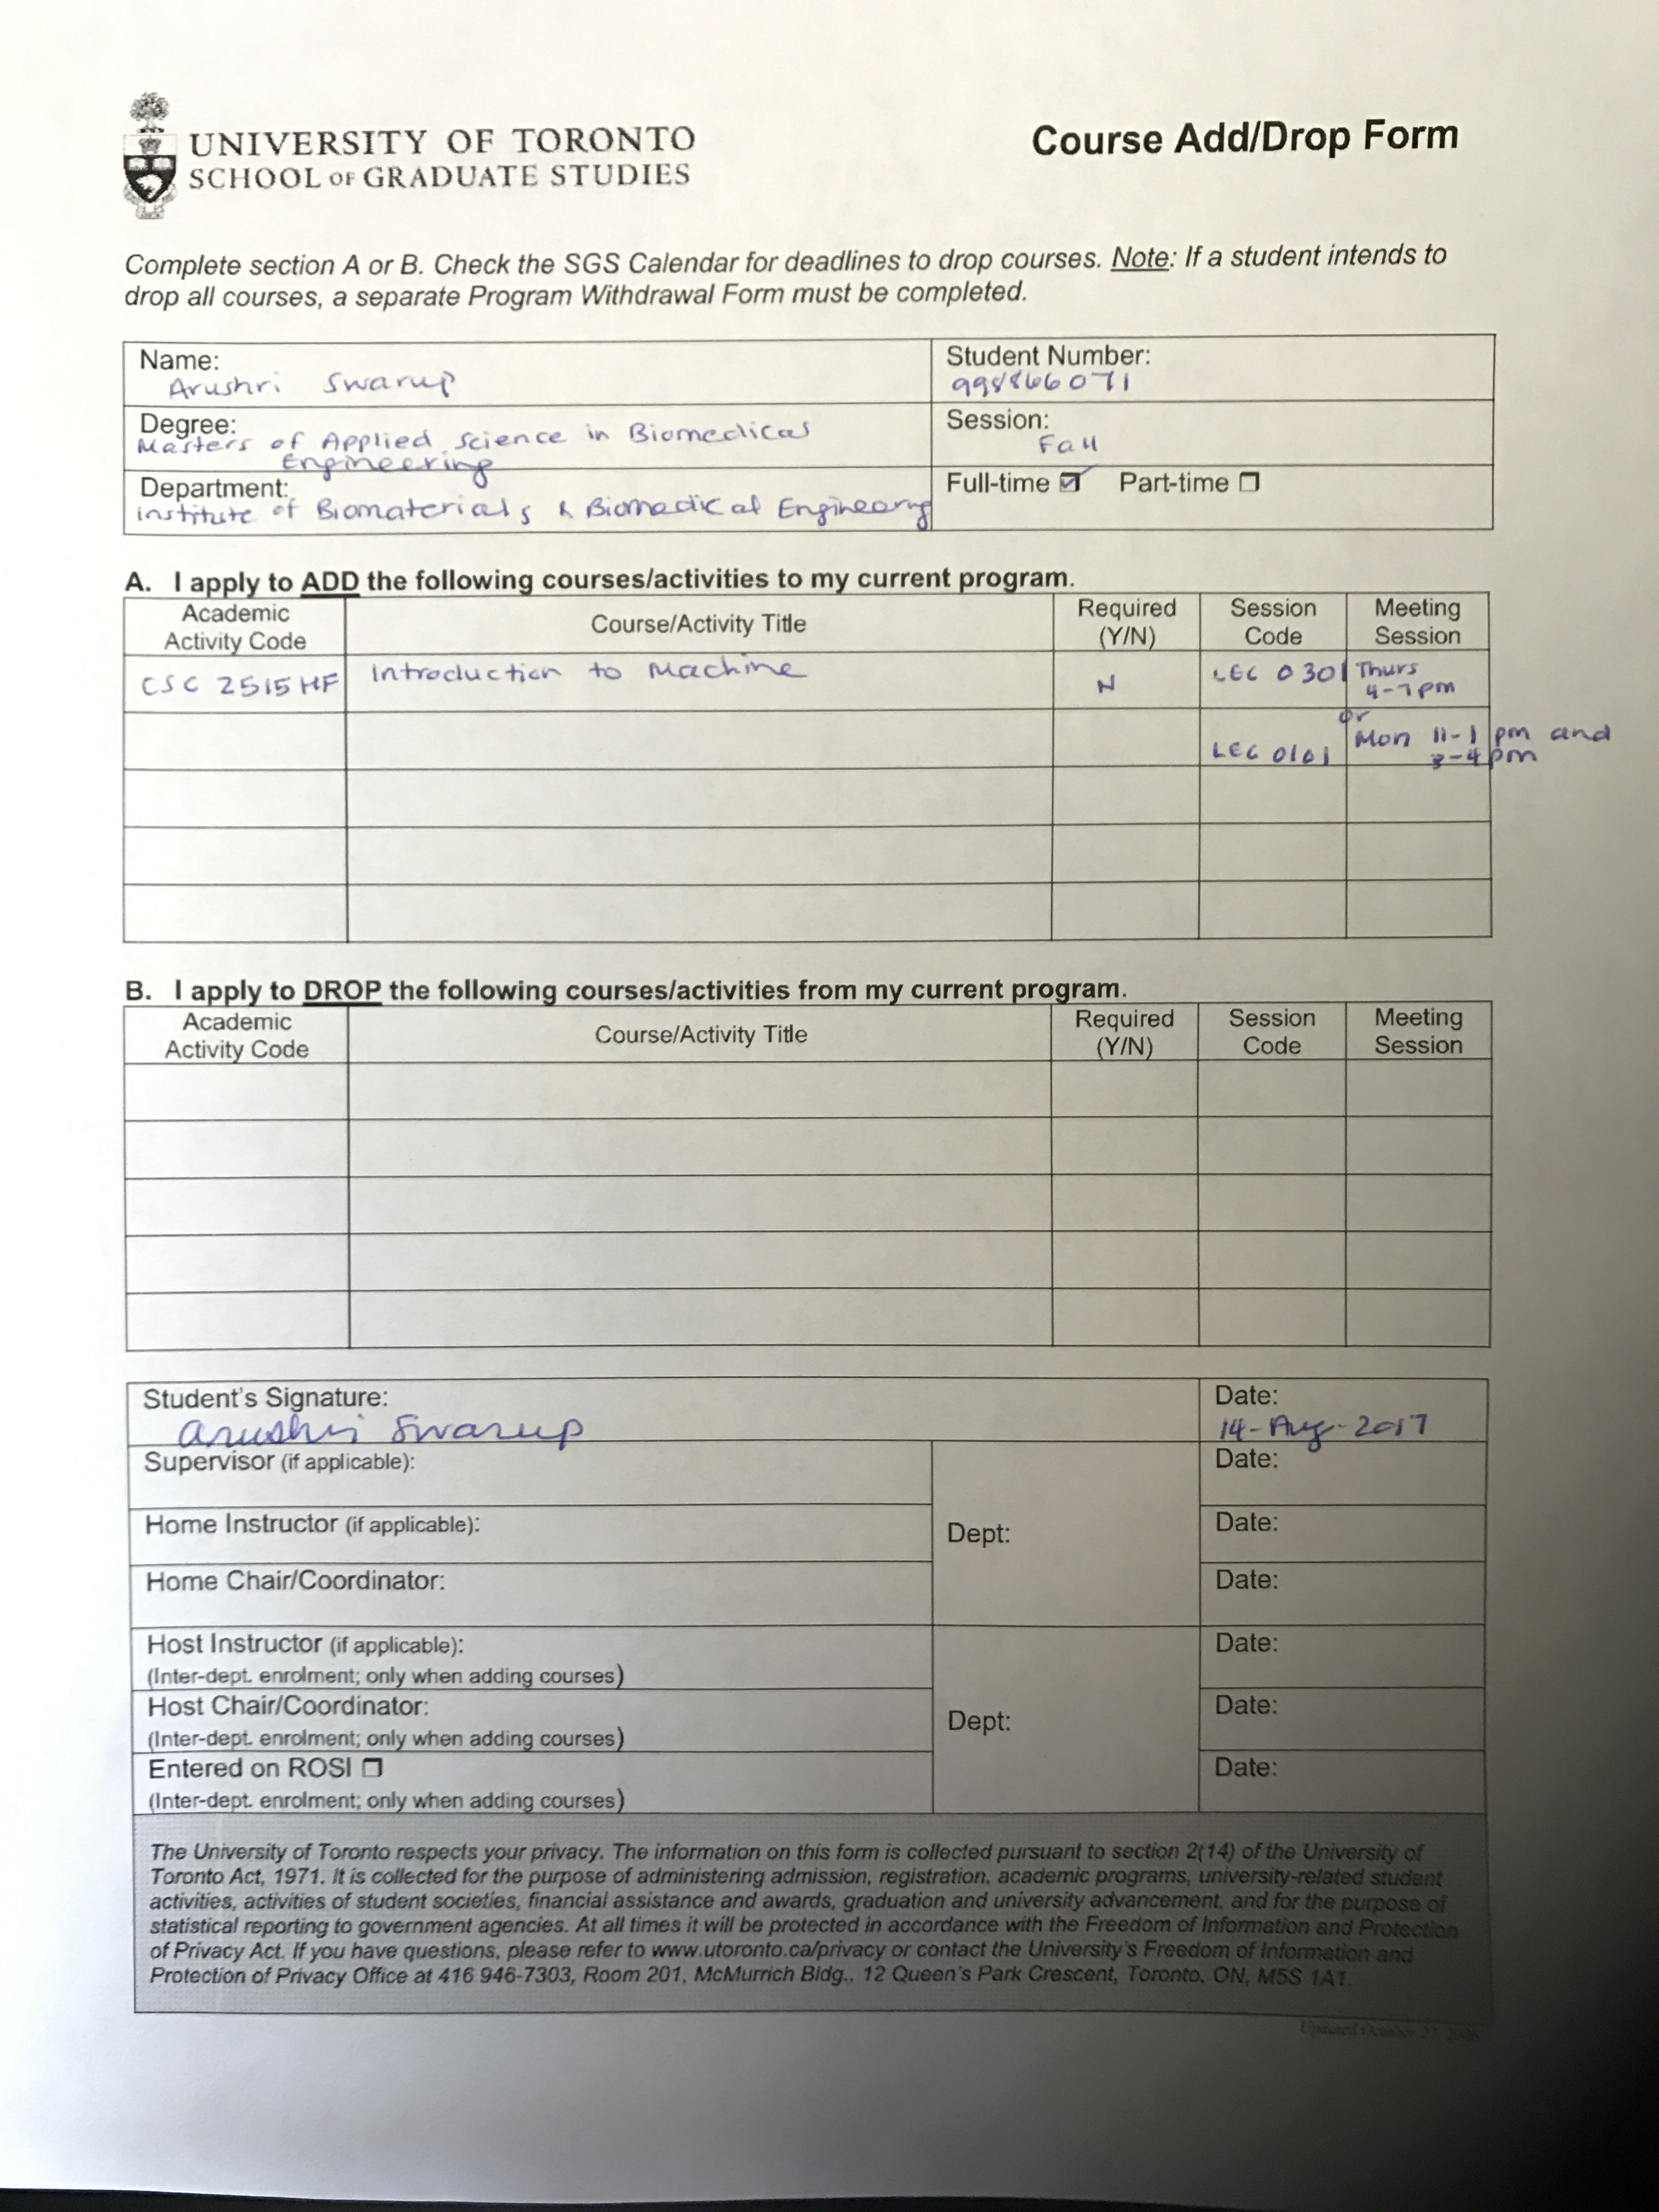 UNIVERSITY OF TORONTO
SCHOOL OF GRADUATE STUDIES
Course Add/Drop Form
Complete section A or B. Check the SGS Calendar for deadlines to drop courses. Note: If a student intends to
drop all courses, a separate Program Withdrawal Form must be completed.
Name:
Arushri Swarup
Student Number:
998866071
Degree:
Masters of Applied Science in Biomedical
Engineering
Session:
Fall
Department:
institute of Biomaterials & Biomedical Engineering
Full-time ☑ Part-time ☐
A. I apply to ADD the following courses/activities to my current program.
Academic
Activity Code
Course/Activity Title
Required
(Y/N)
Session
Code
Meeting
Session
CSC 2515 HF
Introduction to Machine
N
LEC 0301
Thurs
4-7pm
or
LEC 0101
Mon 11-1 pm and
3-4pm
B. I apply to DROP the following courses/activities from my current program.
Academic
Activity Code
Course/Activity Title
Required
(Y/N)
Session
Code
Meeting
Session
Student's Signature:
Arushri Swarup
Date:
14-Aug-2017
Supervisor (if applicable):
Date:
Home Instructor (if applicable):
Dept:
Date:
Home Chair/Coordinator:
Date:
Host Instructor (if applicable):
(Inter-dept. enrolment; only when adding courses)
Date:
Host Chair/Coordinator:
(Inter-dept. enrolment; only when adding courses)
Dept:
Date:
Entered on ROSI ☐
(Inter-dept. enrolment; only when adding courses)
Date:
The University of Toronto respects your privacy. The information on this form is collected pursuant to section 2(14) of the University of
Toronto Act, 1971. It is collected for the purpose of administering admission, registration, academic programs, university-related student
activities, activities of student societies, financial assistance and awards, graduation and university advancement, and for the purpose of
statistical reporting to government agencies. At all times it will be protected in accordance with the Freedom of Information and Protection
of Privacy Act. If you have questions, please refer to www.utoronto.ca/privacy or contact the University's Freedom of Information and
Protection of Privacy Office at 416 946-7303, Room 201, McMurrich Bldg., 12 Queen's Park Crescent, Toronto, ON, M5S 1A1.
Updated October